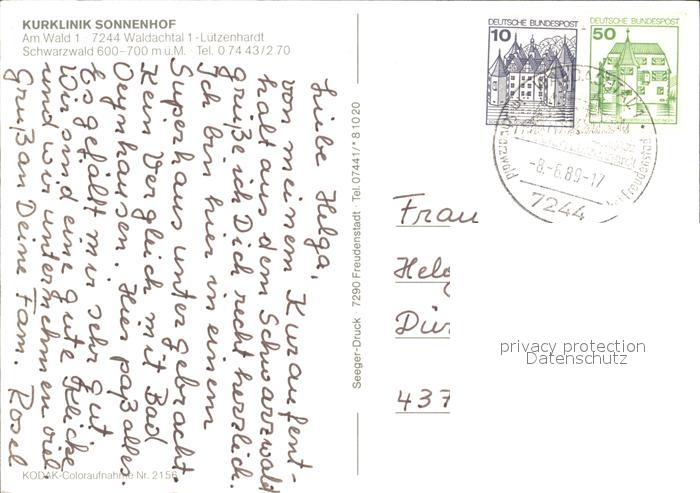 KURKLINIK SONNENHOF
Am Wald 1 · 7244 Waldachtal 1-Lützenhardt
Schwarzwald 600–700 m ü.M. · Tel. 0 74 43/2 70
Liebe Helga,
von meinem Kuraufent-
halt aus dem Schwarzwald
grüße ich Dich recht herzlich.
Ich bin hier in einem
Superhaus untergebracht.
Kein Vergleich mit Bad
Oeynhausen. Hier paßt alles.
Es gefällt mir sehr gut
Wir sind eine gute Klicke
und wir unternehmen viel.
Gruß an Deine Fam. Rosel
KODAK-Coloraufnahme Nr. 2156
Seeger-Druck 7290 Freudenstadt · Tel. 07441/* 8 10 20
DEUTSCHE BUNDESPOST
10
DEUTSCHE BUNDESPOST
50
-8.-6.89-17
7244
Frau
Helg
Dür
437
privacy protection
Datenschutz